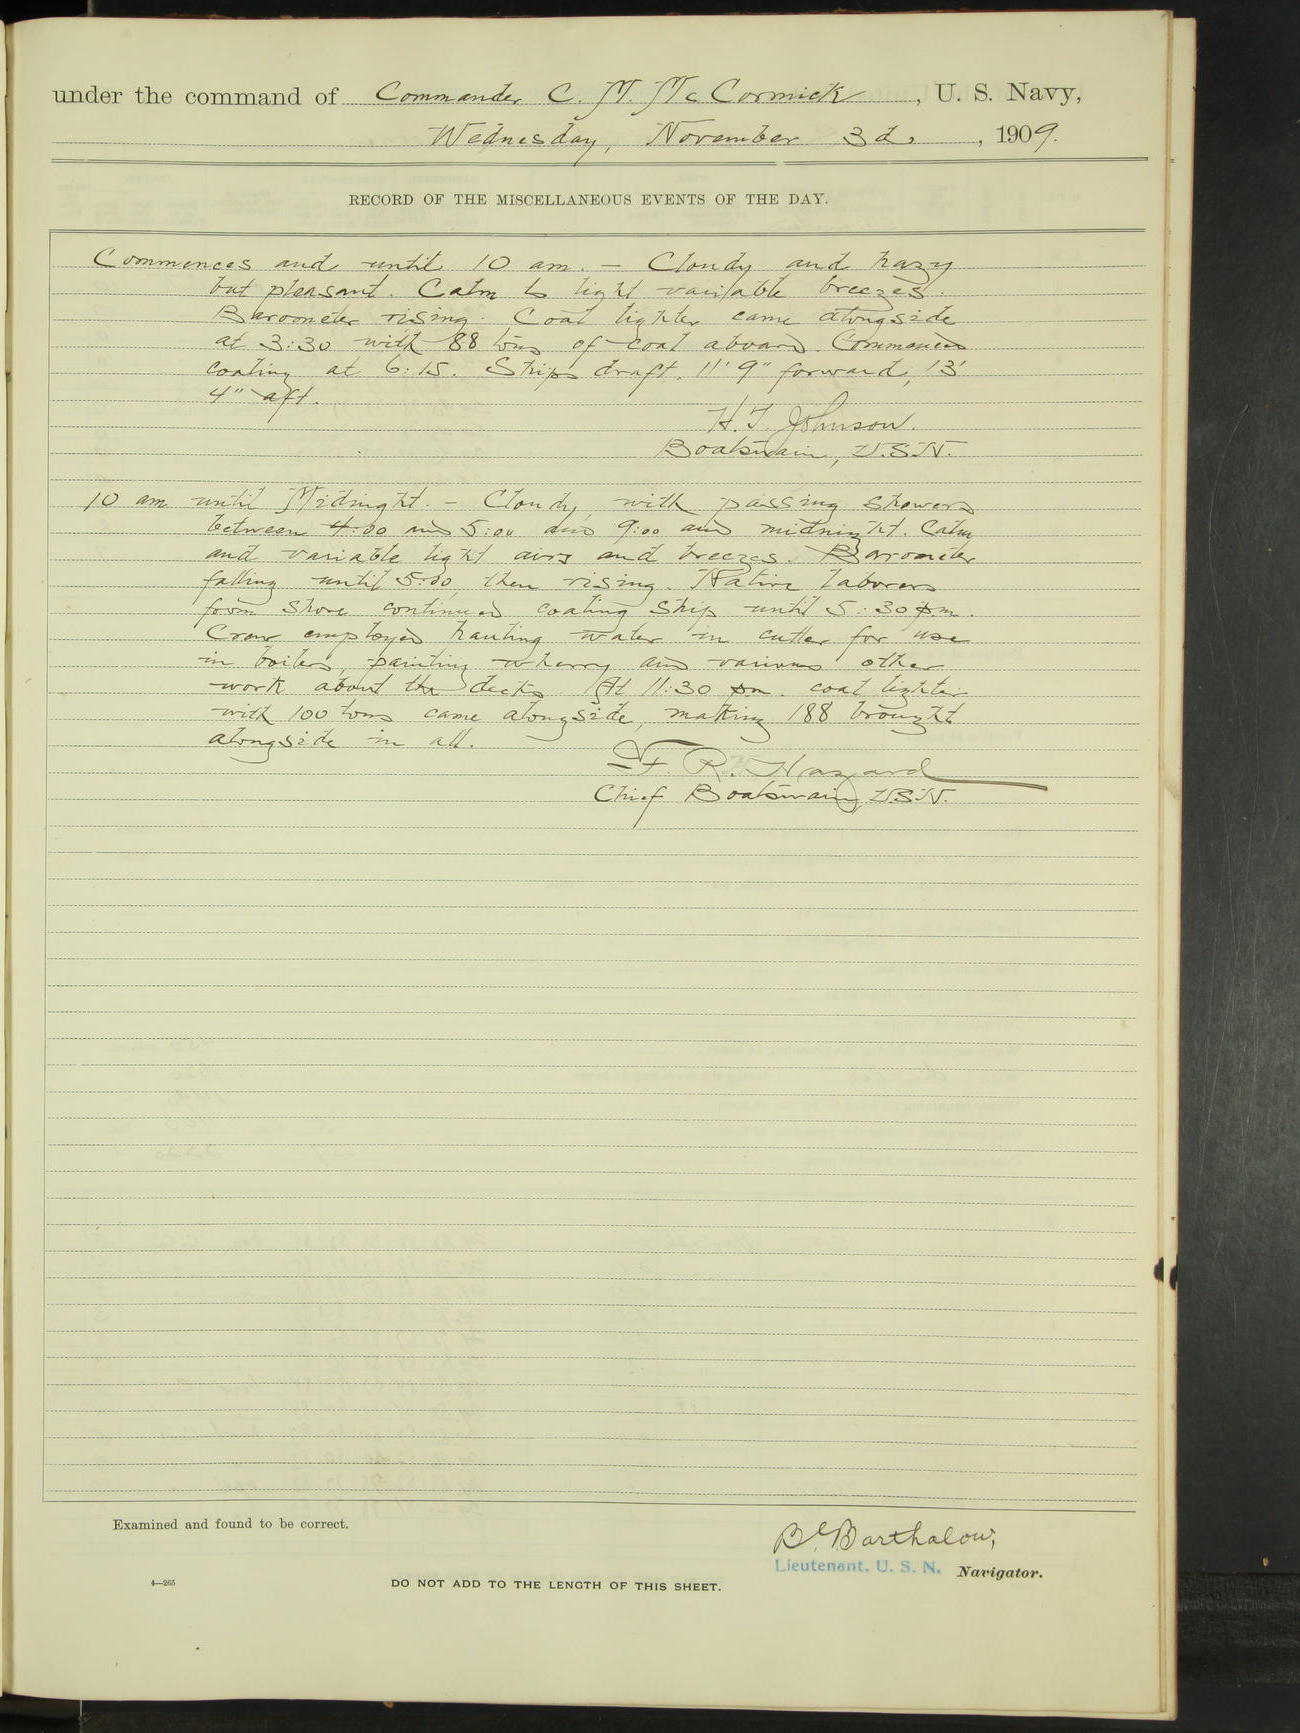 under the command of Commander C. M. McCormick, U. S. Navy,
Wednesday, November 3d, 1909.
RECORD OF THE MISCELLANEOUS EVENTS OF THE DAY.
Commences and until 10 am. — Cloudy and hazy
but pleasant. Calm to light variable breezes.
Barometer rising. Coal lighter came alongside
at 3:30 with 88 tons of coal aboard. Commenced
coaling at 6:15. Ships draft. 11' 9" forward, 13'
4" aft.
H. T. Johnson.
Boatswain, U.S.N.
10 am until Midnight. — Cloudy, with passing showers
between 4:00 and 5:00 and 9:00 and midnight. Calm
and variable light airs and breezes. Barometer
falling until 5:00, then rising. Native laborers
from shore continued coaling ship until 5:30 pm.
Crew employed hauling water in cutter for use
in boilers, painting wherry and various other
work about the decks. At 11:30 pm. coal lighter
with 100 tons came alongside, making 188 brought
alongside in all.
F. R. Hazard
Chief Boatswain, USN.
Examined and found to be correct.
B Barthalow,
Lieutenant, U. S. N. Navigator.
4—265
DO NOT ADD TO THE LENGTH OF THIS SHEET.